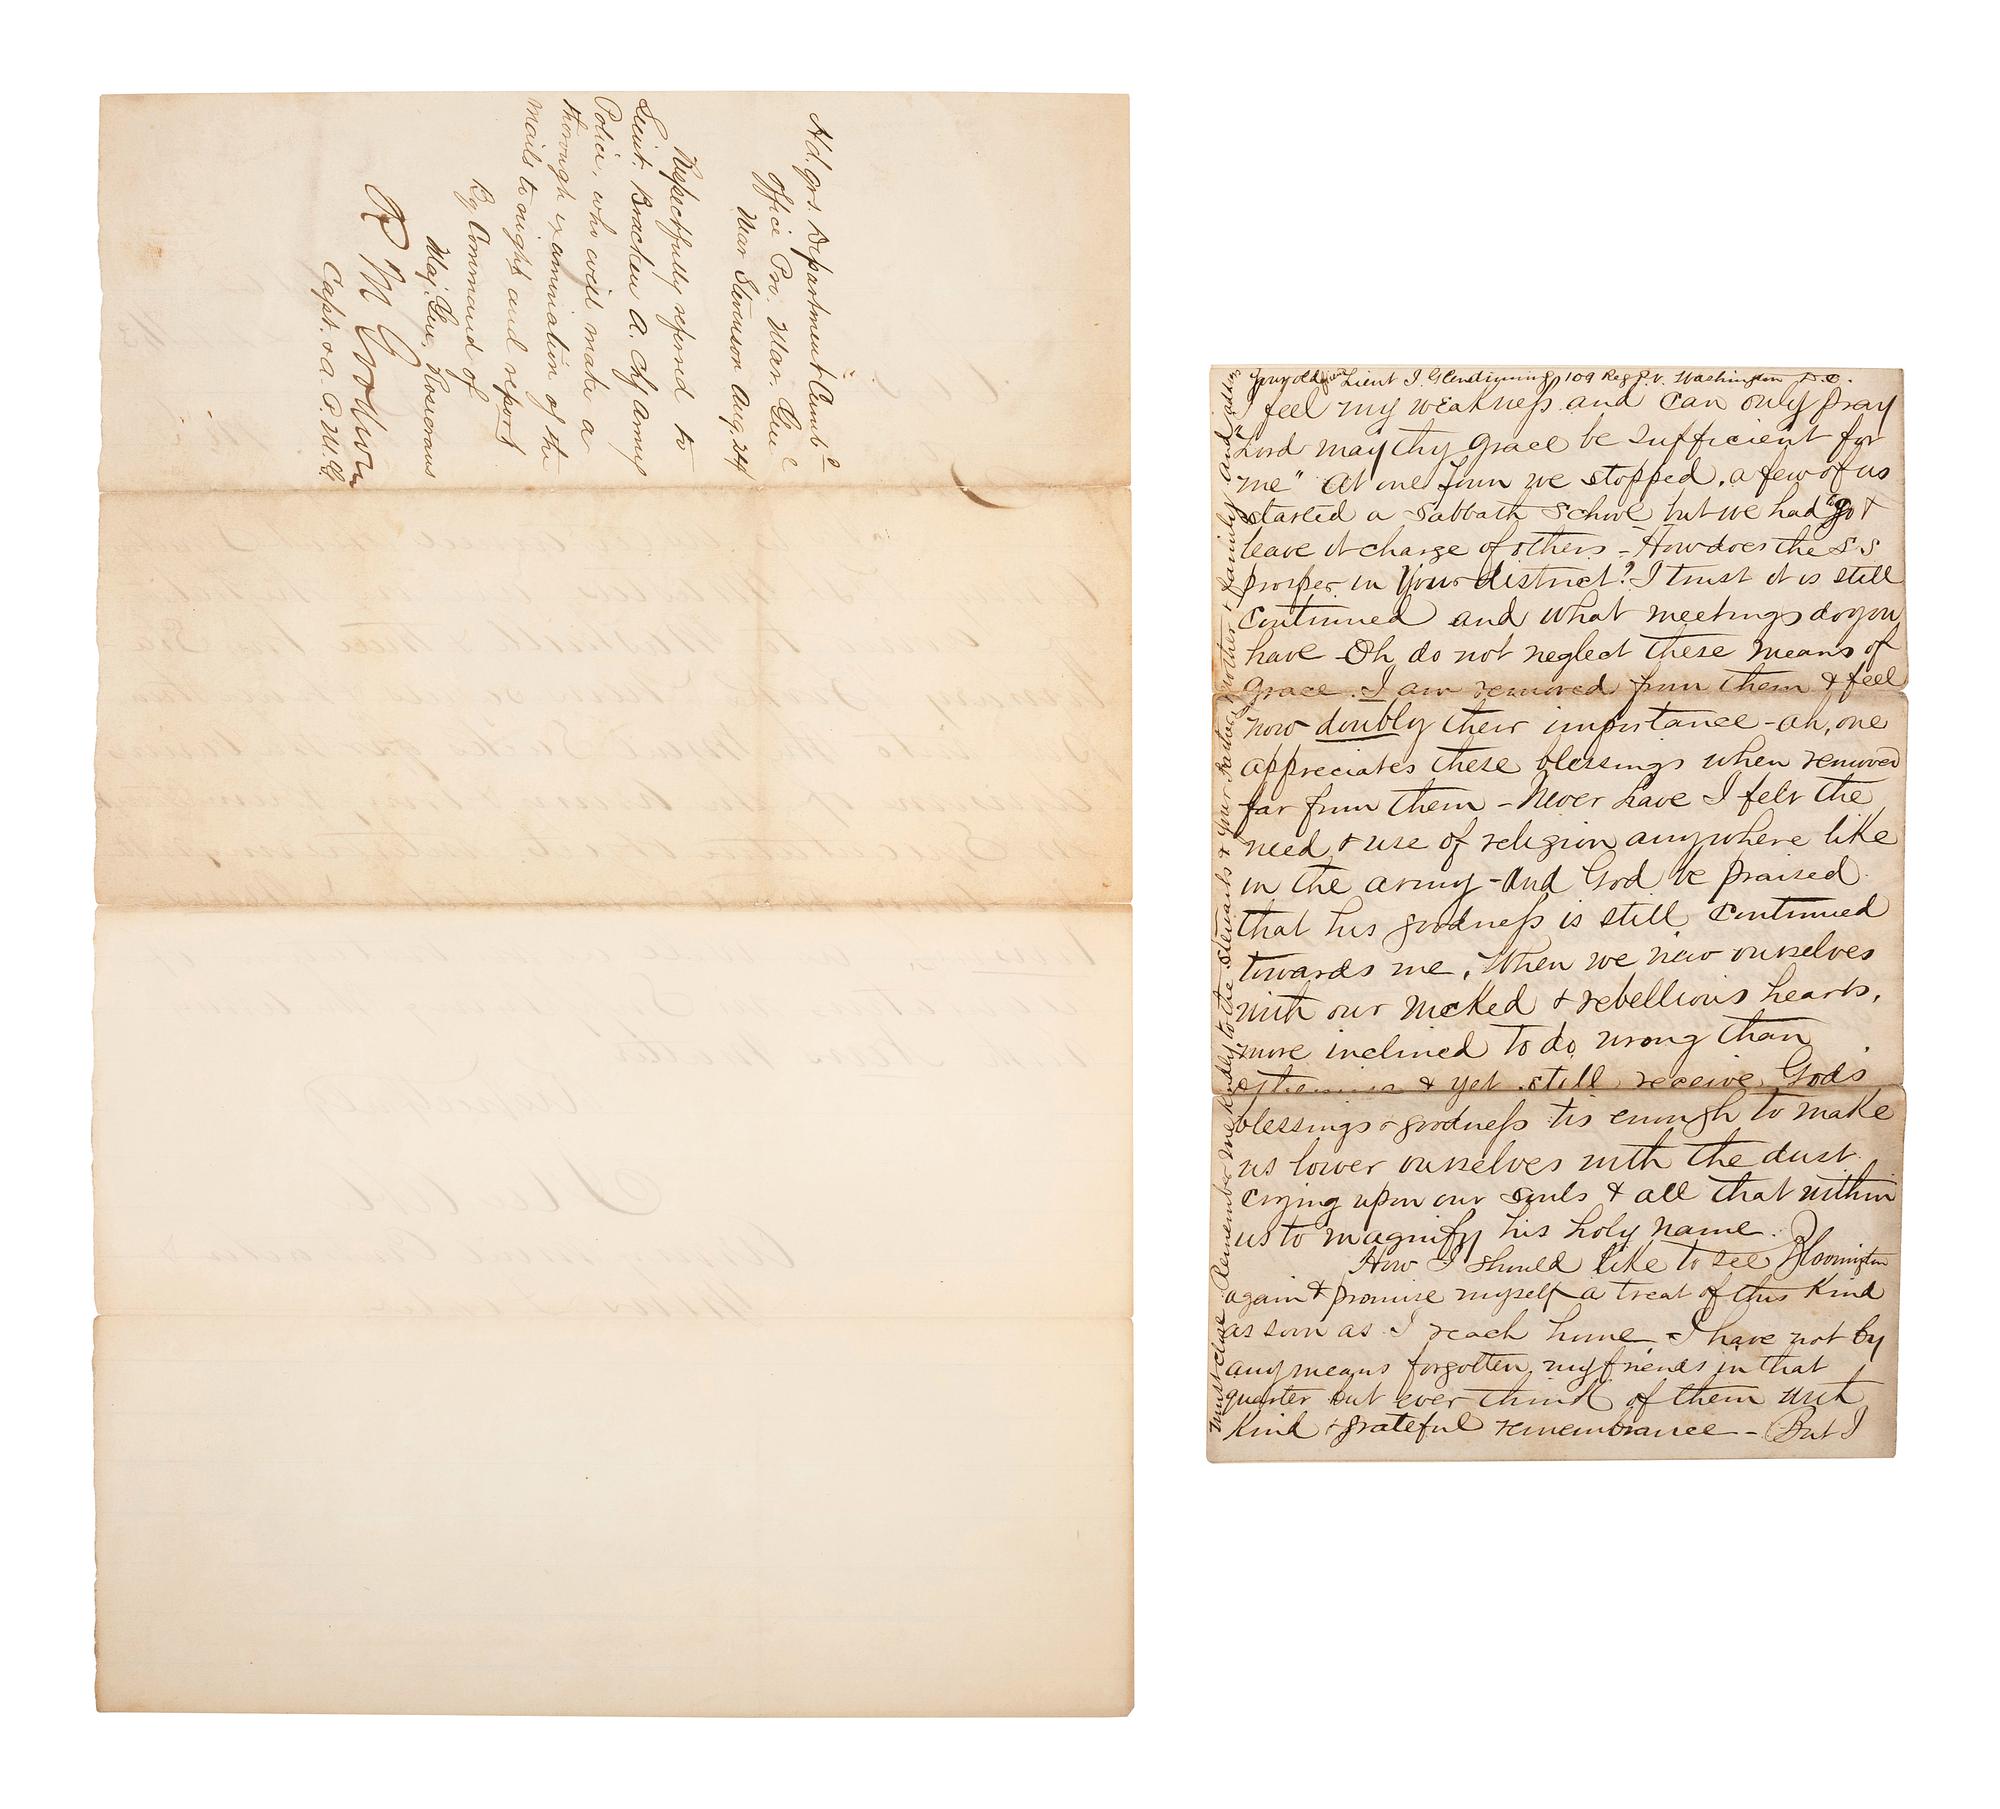 Hd. qrs. Department Cumbd
Office Pro. Mar. Genl
War Stevenson Aug. 24
Respectfully referred to
Lieut. Bracken A. Chf Army
Police, who will make a
thorough examination of the
mails to night and report
By Command of
Maj. Gen. Rosecrans
R M Goodwin
Capt. & A. P. M. G.
your old friend Lieut J. Glendinning 109 Reg P. V. Washington D.C.
I feel my weakness and can only pray
"Lord may thy grace be sufficient for
me" At one Town we stopped, a few of us
started a Sabbath School but we had to go &
leave it charge of others - How does the S S
prosper in Your district? I trust it is still
continued and what meetings do you
have - Oh do not neglect these means of
grace. I am removed from them & feel
now doubly their importance - ah, one
appreciates these blessings when removed
far from them - Never have I felt the
need & use of religion anywhere like
in the army - and God be praised
that his goodness is still continued
towards me. When we view ourselves
with our wicked & rebellious hearts,
more inclined to do wrong than
otherwise & yet still receive Gods
blessings & goodness tis enough to make
us lower ourselves with the dust
crying upon our souls & all that within
us to magnify his holy name.
How I should like to see Bloomington
again & promise myself a treat of this kind
as soon as I reach home - I have not by
any means forgotten my friends in that
quarter but ever think of them with
kind & grateful remembrance - But I
must close. Remember me kindly to the Stewarts & your Father Mother & family and